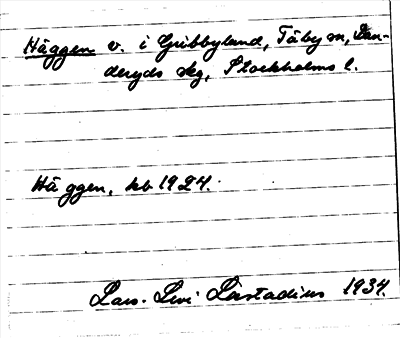 Häggen v. i Gribbyland, Täby sn, Dan-
deryds skg, Stockholms l.
Häggen, kb 1924.
Lars-Levi Læstadius 1934.